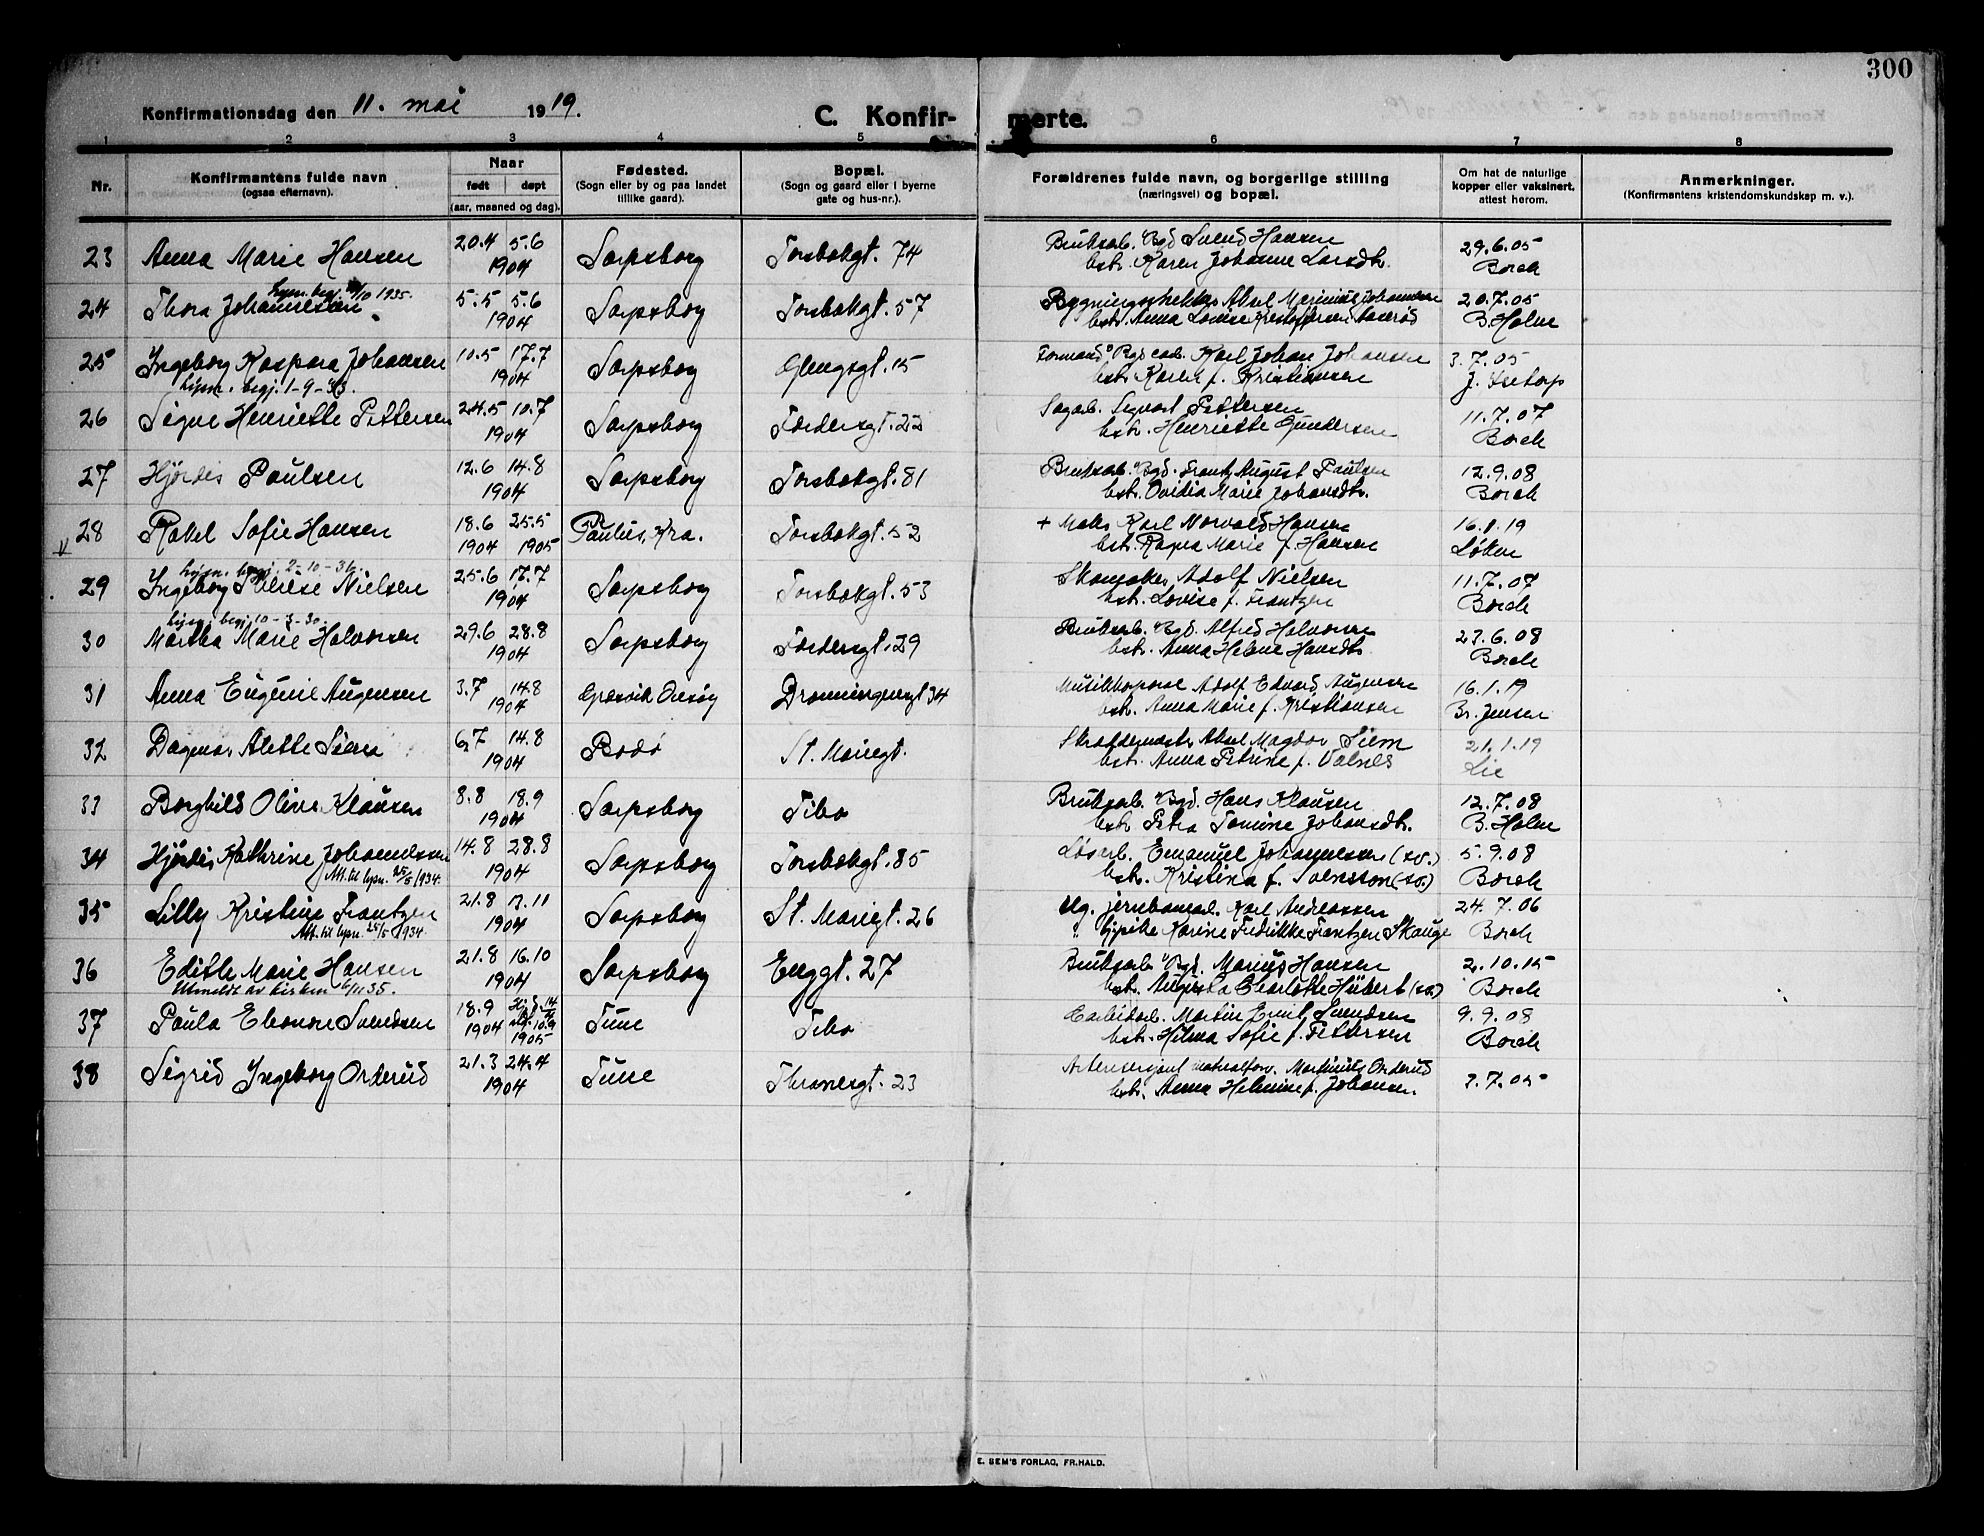 300
Konfirmationsdag den 11. mai 1919.
C. Konfirmerte.
1 2 3 4 5 6 7 8
Nr.
Konfirmantens fulde navn
(ogsaa efternavn).
Naar
født døpt
(aar, maaned og dag).
Fødested.
(Sogn eller by og paa landet
tillike gaard).
Bopæl.
(Sogn og gaard eller i byerne
gate og hus-nr.).
Forældrenes fulde navn, og borgerlige stilling
(næringsvei) og bopæl.
Om hat de naturlige
kopper eller vaksinert,
attest herom.
Anmerkninger.
(Konfirmantens kristendomskundskap m. v.).
23 Anna Marie Hansen 20.4 5.6 Sarpsborg Torsbekgt. 74 Bruksarb. Bgd Svend Hansen 29.6.05
1904 hstr. Karen Johanne Larsdtr. Borch
lysn. begj. /10 1935.
24 Thora Johannesen 5.5 5.6 Sarpsborg Torsbekgt. 57 Aksel Marinius Johannesen 20.7.05
1904 hstr. Anna Lovise Kristoffersen B. Holm
25 Ingeborg Kaspara Johansen 10.5 17.7 Sarpsborg Glengsgt. 15 Formand Karl Johan Johansen 3.7.05
lysn. begj. 1-9-43. 1904 hstr. Karen f. Kristiansen
26 Signe Henriette Pettersen 24.5 10.7 Sarpsborg Tordersgt. 22 Sagarb. Sigvart Pettersen 11.7.07
1904 hstr. Henriette Gundersen Borch
27 Hjørdis Paulsen 12.6 14.8 Sarpsborg Torsbekgt. 81 Bruksarb. Bgd. Frantz August Paulsen 12.9.08
1904 hstr. Ovidia Marie Johansdtr. Borch
28 Rakel Sofie Hansen 18.6 25.5 Paulus, Kra. Torsbekgt. 52 + Karl Norvald Hansen 16.1.19
v 1904 1905 hstr. Ragna Marie f. Hansen Løken
lysn. begj. 2-10-31.
29 Ingeborg Therese Nielsen 25.6 17.7 Sarpsborg Torsbekgt. 53 Skomaker Adolf Nielsen 11.7.07
1904 hstr. Lovise f. Frantzen Borch
lysn. begj. 10-3-30.
30 Martha Marie Halvorsen 29.6 28.8 Sarpsborg Tordersgt. 29 Bruksarb. Bgd. Alfred Halvorsen 27.6.08
1904 hstr. Anna Helene Hansdtr. Borch
31 Anna Eugenie Augensen 3.7 14.8 Græsvik Onsøy Dronningensgt 34 Musikkorporal Adolf Edvard Augensen 16.1.19
1904 hstr. Anna Marie f. Kristiansen Br. Jensen
32 Dagmar Alette Siem 6.7 14.8 Bodø St. Mariegt. Skræddermester Aksel Magdor Siem 21.1.19
1904 hstr. Anna Petrine f. Valnes Lie
33 Borghild Oline Klausen 8.8 18.9 Sarpsborg Tibo Bruksarb. Bgd. Hans Klausen 12.7.08
1904 hstr. Petra Tomine Johansdtr. B. Holm
34 Hjørdis Kathrine Johannessen 14.8 28.8 Sarpsborg Torsbekgt. 85 Løsarb. Emanuel Johannessen (sv.) 5.9.08
Att. til lysn. 25/5 1934. 1904 hstr. Kristina f. Svensson (sv.) Borch
35 Lilly Kristine Frantzen 21.8 13.11 Sarpsborg St. Mariegt. 26 Ug. jernbanearb. Karl Andreassen 24.7.06
Att. til lysn. 25/5 1934. 1904 " pike Karine Fredrikke Frantzen Skauge Borch
36 Edith Marie Hansen 21.8 16.10 Sarpsborg Enggt. 27 Bruksarb. Bgd. Marius Hansen 2.10.15
Utmeldt av kirken 6/11 35. 1904 hstr. Augusta Charlotte Hübert (sv.) Borch
37 Paula Eleonore Svendsen 18.9 Tune Tibo Carbidarb. Martin Emil Svendsen 9.9.08
1904 10.9 1905 hstr. Hilma Sofie f. Pettersen Borch
38 Sigrid Ingeborg Orderud 21.3 24.4 Tune Thranesgt. 23 Martinius Orderud 7.7.05
1904 hstr. Anna Helmine f. Johansen.
E. SEM'S FORLAG, FR.HALD.